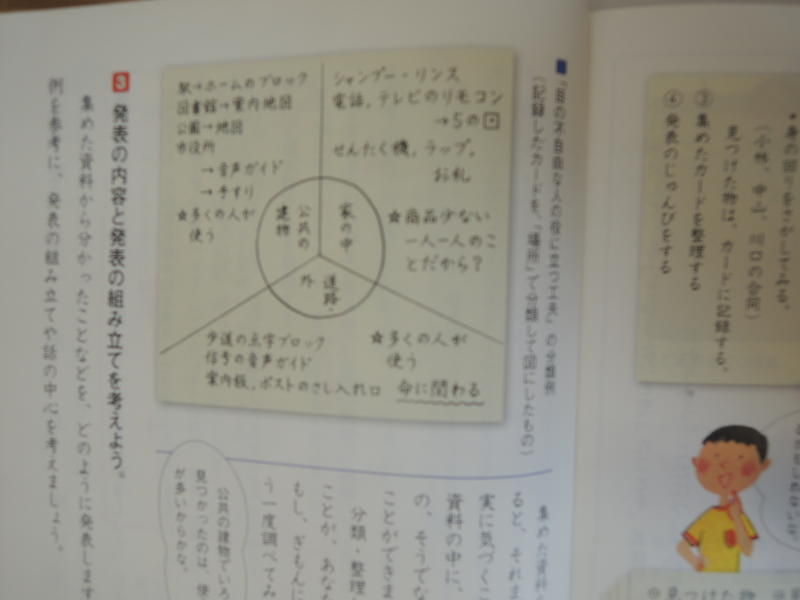 ・身の回りをさがしてみる。
(小林、中山、川口の合同)
見つけた物は、カードに記録する。
③ 集めたカードを整理する
④ 発表のじゅんびをする
■「目の不自由な人の役に立つ工夫」の分類例
(記録したカードを、「場所」で分類して図にしたもの)
駅→ホームのブロック
図書館→案内地図
公園→地図
市役所
→音声ガイド
→手すり
★多くの人が
使う
シャンプー・リンス
電話、テレビのリモコン
→5の
せんたく機、ラップ、
お札
★商品少ない
一人一人のこ
とだから?
家の中
公共の
建物
道路・
外
歩道の点字ブロック
信号の音声ガイド
案内板、ポストのさし入れ口
★多くの人が
使う
命に関わる
3 発表の内容と発表の組み立てを考えよう。
集めた資料から分かったことなどを、どのように発表します
例を参考に、発表の組み立てや話の中心を考えましょう。
集めた資料
ると、それま
実に気づくこ
資料の中に、
の、そうでな
ことができま
分類・整理
ことが、あなた
もし、ぎもんに
う一度調べてみ
公共の建物でいろ
見つかったのは、使
が多いからかな。
見つけた物